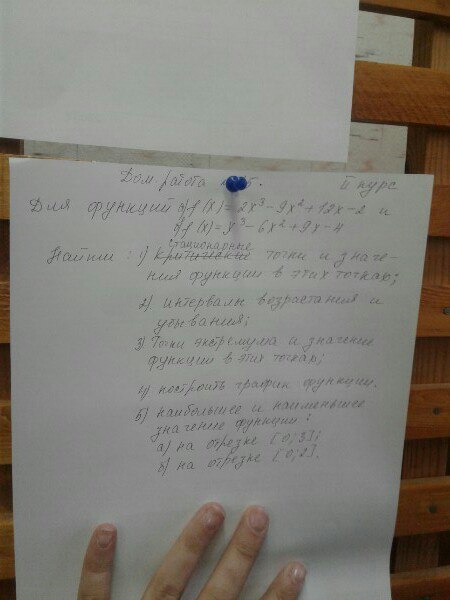 Дом. работа II курс
Для функций а) f(x)=2x³-9x²+12x-2 и
б) f(x)=x³-6x²+9x-4
стационарные
Найти: 1) критические точки и значе-
ния функции в этих точках;
2) интервалы возрастания и
убывания;
3) Точки экстремума и значение
функции в этих точках;
4) построить график функции.
5) наибольшее и наименьшее
значение функции:
а) на отрезке [0;3];
б) на отрезке [0;2].